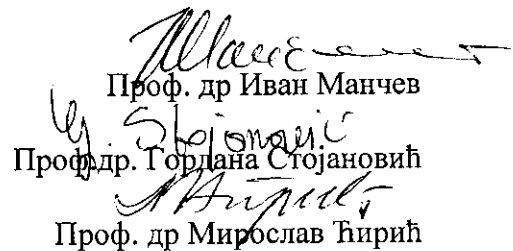 Проф. др Иван Манчев
Проф.др. Гордана Стојановић
Проф. др Мирослав Ћирић